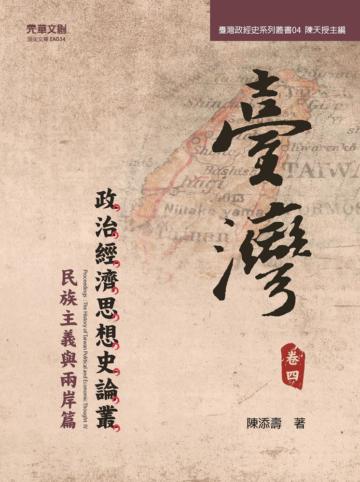 元華文創
頂尖文庫 EA034
臺灣政經史系列叢書04 陳天授主編
臺灣
卷四
政治經濟思想史論叢
Proceedings: The History of Taiwan Political and Economic Thought IV
民族主義與兩岸篇
陳添壽 著
TAIWAN
FORMOSA
Niitaka yama